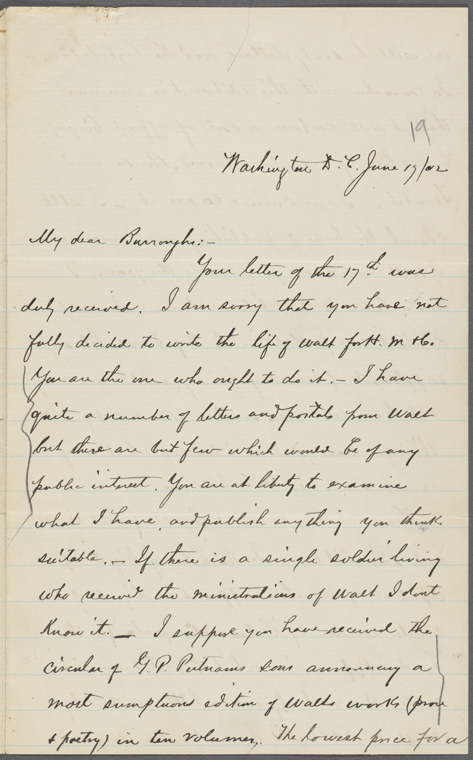 19
Washington D. C. June 19/02
My dear Burroughs:-
Your letter of the 17th was
duly received. I am sorry that you have not
fully decided to write the life of Walt for H. M & Co.
You are the one who ought to do it. - I have
quite a number of letters and postals from Walt
but there are but few which would be of any
public interest. You are at liberty to examine
what I have, and publish anything you think
suitable. - If there is a single soldier living
who received the ministrations of Walt I dont
know it. - I suppose you have received the
circular of G. P. Putnams sons announcing a
most sumptuous edition of Walts works (prose
& poetry) in ten volumes. The lowest price for a